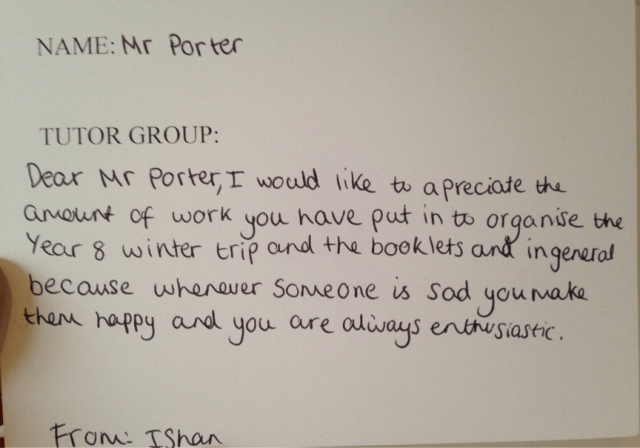 NAME: Mr Porter
TUTOR GROUP:
Dear Mr Porter, I would like to apreciate the
amount of work you have put in to organise the
Year 8 winter trip and the booklets and in general
because whenever someone is sad you make
them happy and you are always enthusiastic.
From: IShan